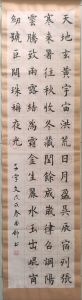 天地玄黃宇宙洪荒日月盈昃辰宿列張
寒來暑往秋收冬藏閏餘成歲律呂調陽
雲騰致雨露結為霜金生麗水玉出崑岡
劍號巨闕珠稱夜光
千字文